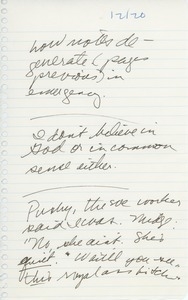 1/2/20
how notes de-
generate (pages
previous) in
emergency.
I don't believe in
God or in common
sense either.
Pushy, the soc worker
said I was. Nudge.
"No, she ain't. She's
quiet." Wait'll you see
this royal ass bitch.